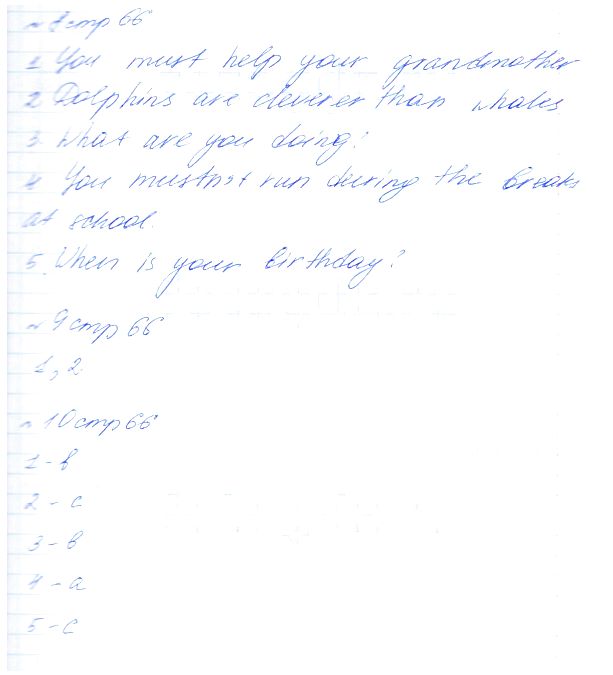 № 8 стр 66
1. You must help your grandmother
2 Dolphins are cleverer than whales
3. What are you doing?
4 You mustn't run during the breaks
at school.
5. When is your birthday?
№ 9 стр 66
1, 2.
№ 10 стр 66
1 - b
2 - c
3 - b
4 - a
5 - c